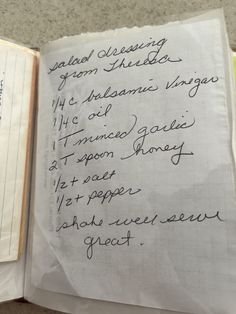 salad dressing
from Theresa
1/4 c balsamic vinegar
1/4 c oil
1 T minced garlic
2 T spoon honey
1/2 t salt
1/2 t pepper
shake well serve
great.